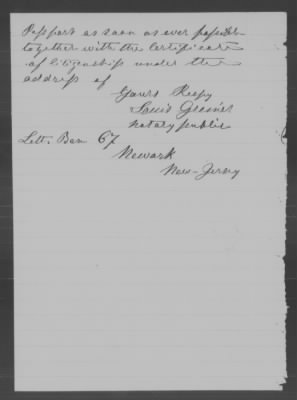 Passport as soon as ever possible
together with the Certificate
of Citizenship under the
address of
Yours Respy
Louis Greiner
notary public
Lett. Box 67
Newark
New-Jersey